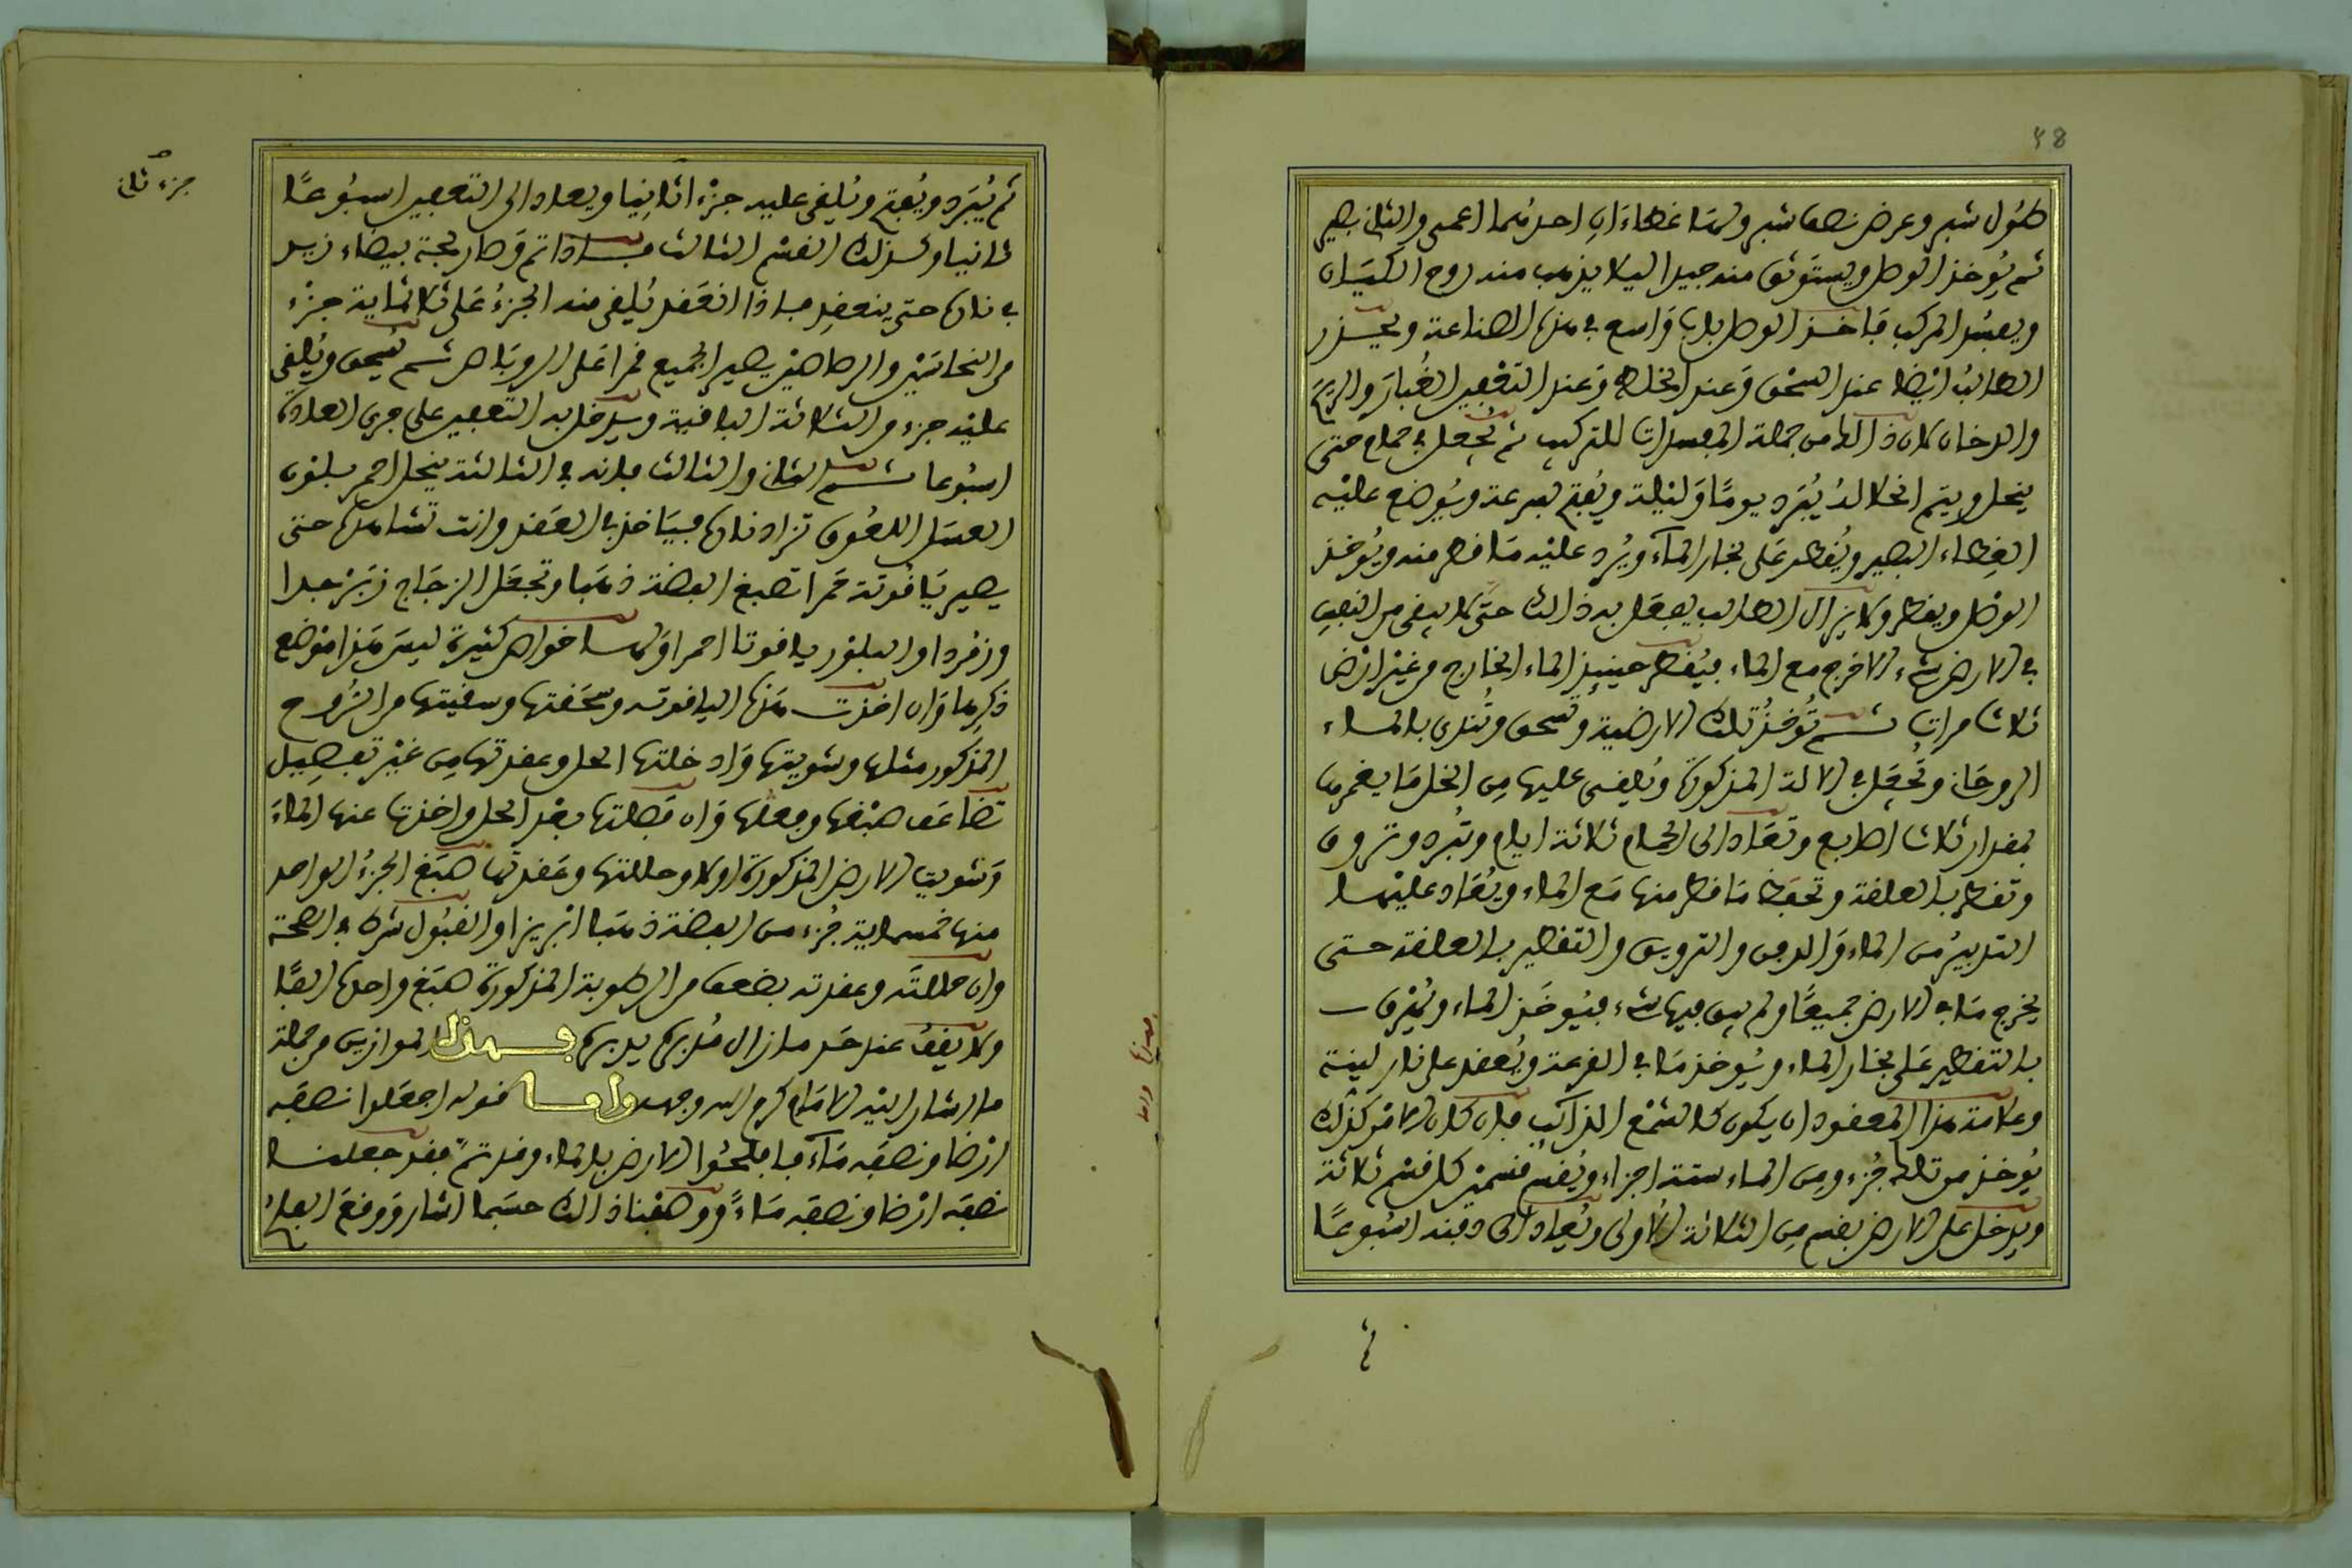 48
طول شبر وعرض نصف شبر ولها غطاءان احدهما اعمى والثاني بصير
ثم يوخذ الوصل ويستوثق منه جيدا ليلا يذهب منه روح الكيان
ويفسد المركب فاخذ الوصل باب واسع في هذه الصناعة وليحذر
الطالب ايضا عند السحق وعند الخلط وعند التقطير الغبار والريح
والدخان فان ذالك من جملة المفسدات للتركيب ثم يجعل في حمام حتى
ينحل ويتم انحلاله يبرد يوما وليلة ويفتح بسرعة ويوضع عليه
الغطاء البصير ويقطر على بخار الماء ويرد عليه ما قطر منه ويوخذ
الوصل ويقطر ولا يزال الطالب يفعل به ذالك حتى لا يبقى من النفس
في الارض شيء الا خرج مع الماء فيقطر حينيذ الماء الخارج من غير ارض
ثلاث مرات ثم توخذ تلك الارضية وتسحق وتندى بالماء
الروحاني وتجعل في الالة المذكورة ويلقى عليها من الخل ما يغمرها
بمقدار ثلاث اصابع وتعاد الى الحمام ثلاثة ايام وتبرد وتروق
وتقطر بالعلقة وتحفظ ما قطر منها مع الماء ويعاد عليها
التدبير من الماء والدفن والترويق والتقطير بالعلقة حتى
يخرج ما في الارض جميعا ولم يبق فيها شيء فيوخذ الماء ويفرق
بالتقطير على بخار الماء ويوخذ ما في القرعة ويعقد على نار لينة
وعلامة هذا المعقود ان يكون كالشمع الذائب فان كان الامر كذلك
يوخذ من تالك جزء ومن الماء ستة اجزاء ويقسم قسمين كل قسم ثلاثة
ويدخل على الارض بقسم من الثلاثة الاولى ويعاد الى دفنه اسبوعا
جزء ثان
ثم يبرد ويفتح ويلقى عليه جزءا ثانيا ويعاد الى التعفين اسبوعا
ثانيا وكذلك القسم الثالث فاذا تم وصار لجة بيضاء زيد
في نارها حتى ينعقد فاذا انعقد يلقى منه الجزء على ثلاثماية جزء
من النحاسين والرصاصين يصير الجميع قمرا على الروباص ثم يسحق ويلقى
عليه جزء والثلاثة الباقية ويدخل به التعفين على جري العادة
اسبوعا ثم الثاني والثالث فانه في الثالثة ينحل احمر بلون
العسل اللعوق تزاد نارها فيياخذ في العقد وانت تشاهده حتى
يصير ياقوتة حمرا تصبغ الفضة ذهبا وتجعل الزجاج زبرجدا
وزمردا والبلور ياقوتا احمرا ولها خواص كثيرة ليس هذا موضع
ذكرها وان اخذت هذه الياقوته وسحقتها وسقيتها من الروح
المذكور مثلها وشويتها وادخلتها الحل وعقدتها من غير تفصيل
تضاعف صبغها وفعلها وان فصلتها بعد الحل واخذت عنها الماء
وشويت الارض المذكورة اولا وحللتها وعقدتها صبغ الجزء الواحد
منها خمسماية جزء من الفضة ذهبا ابريزا والقبول شرط في الصحة
وان حللته وعقدته بضعف من الرطوبة المذكورة صبغ واحدها الفا
ولا يقف عند حد مازال مدبرها يدبرها فهذه الموازين من جملة
ما اشار اليه الامام كرم الله وجهه واما قوله اجعلوا نصفه
ارضا ونصفه ماء فافلحوا الارض بالماء وقد تم فقد جعلنا
نصفه ارضا ونصفه ماء ووصفنا ذالك حسبما اشار ووقع الفلح